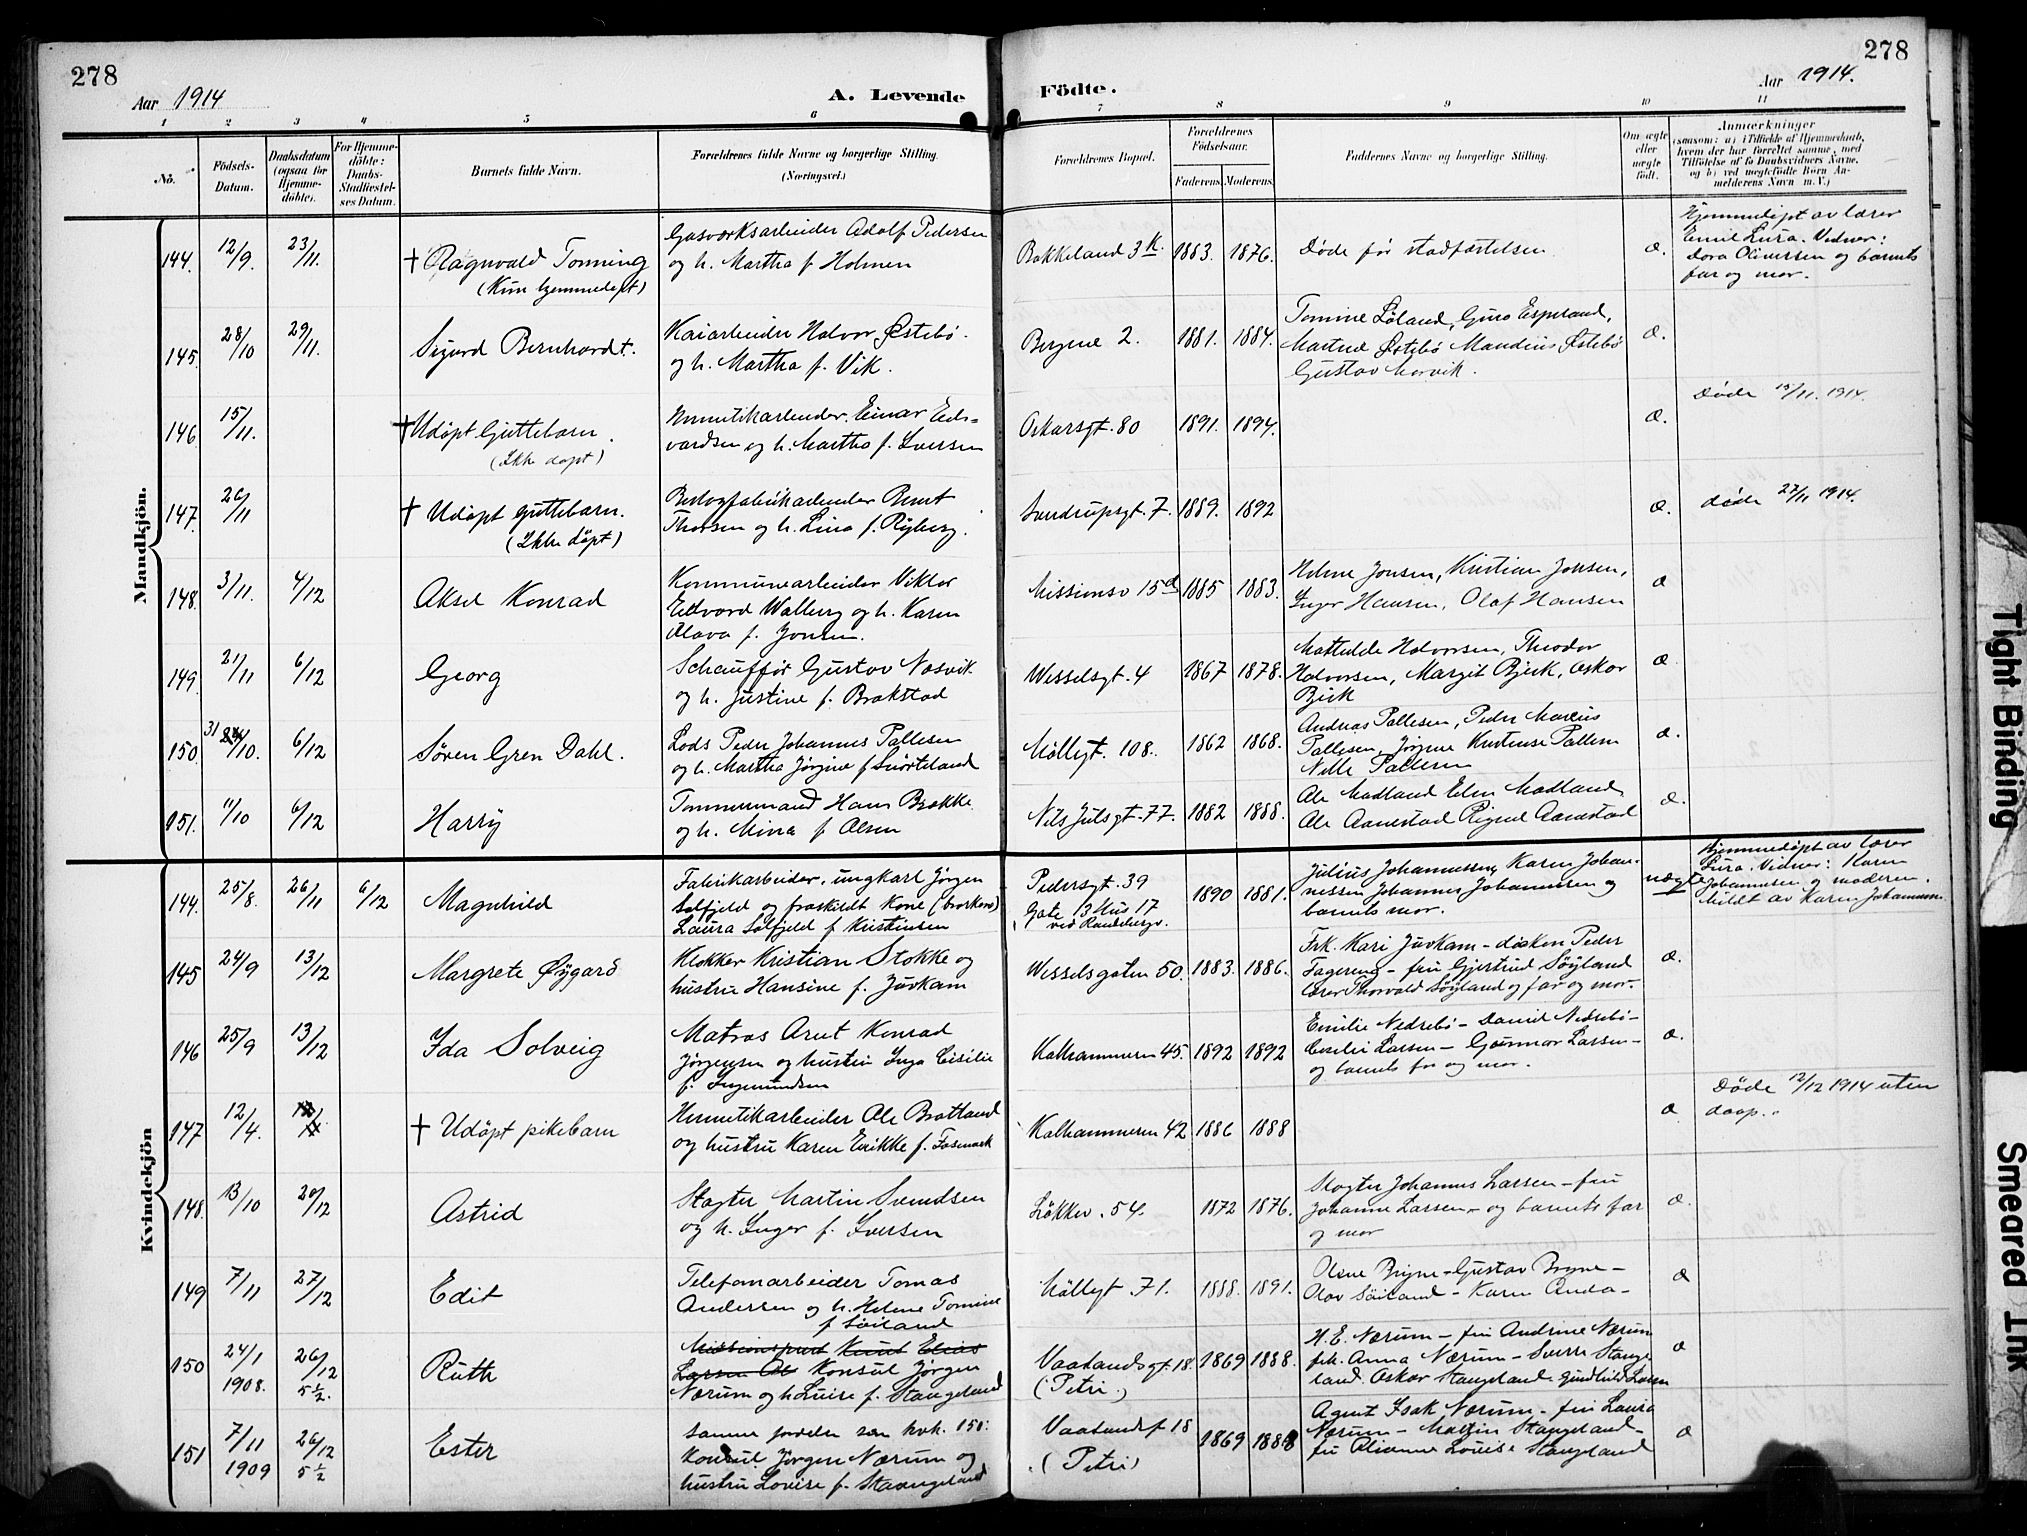 278
Aar 1914
A. Levende
Födte.
Aar 1914.
278
1 2 3 4 5 6 7 8 9 10 11
No.
Födsels-
Datum.
Daabsdatum
(ogsaa for
Hjemme-
döbte).
For Hjemme-
döbte:
Daabs-
Stadfæstel-
ses Datum.
Barnets fulde Navn.
Forældrenes fulde Navne og borgerlige Stilling.
(Næringsvei.)
Forældrenes Bopæl.
Forældrenes
Födselsaar.
Faderens. Moderens.
Faddernes Navne og borgerlige Stilling.
Om ægte
eller
uægte
födt.
Anmærkninger
(saasom: a) i Tilfælde af Hjemmedaab,
hvem der har forrettet samme, med
Tilföielse af to Daabsvidners Navne,
og b) ved uægtefödte Börn An-
melderens Navn m.V.)
Mandkjön.
144. 12/9. 23/11. † Ragnvald Tonning
(Kun hjemmedøpt)
Gasværksarbeider Adolf Pedersen
og h. Martha f. Holmen
Bakkeland 3 K. 1883. 1876. Døde før stadfæstelsen æ.
Hjemmedøpt av lærer
Emil Lura. Vidner:
Dora Oliversen og barnets
far og mor.
145. 28/10 29/11. Sigurd Bernhardt.
Kaiarbeider Halvor Østebö.
og h. Martha f. Vik.
Bergene 2. 1881. 1884.
Tomine Løland, Guro Espeland,
Martine Østebö Mandius Østebö
Gustav Morvik.
æ.
146. 15/11. † Udöpt Guttebarn.
(Ikke døpt)
Hermetikarbeider. Einar Ed-
vardsen og h. Martha f. Iversen
Oskarsgt. 80 1891. 1894. æ.
Døde 15/11. 1914.
147. 26/11 † Udöpt guttebarn.
(Ikke döpt)
Thorsen og h. Lina f. Ryberg.
7. 1889. 1892 æ. døde 27/11 1914.
148. 3/11. 4/12 Aksel Konrad
Kommunearbeider Viktor
Edvard Walberg og h. Karen
Olava f. Jonsen.
Missionsv 15 d 1885 1883.
Helene Jonsen, Kristian Jonsen,
Inger Hansen, Olaf Hansen
æ
149. 21/11 6/12 Georg
Schauffør Gustav Næsvik
og h. Justine f. Brakstad
Wesselsgt. 4 1867 1878.
Mathilde Halvorsen, Theodor
Halvorsen, Margit Bjerk, Oskar
Bjerk
æ
150. 31/10. 6/12 Søren Gren Dahl.
Lods Peder Johannes Pallesen
og h. Martha Jørgine f
Møllegt. 108. 1862 1868.
Andreas Pallesen, Peder Marius
Pallesen, Jørgine Kristense Pallesen
Nille Pallesen
æ.
151. 11/10 6/12 Harry
Tømmermand Hans Brekke
og h. Mina f Olsen
Nils Julsgt. 77. 1882 1888.
Ole Madland Elen Madland,
Ole Aanestad Rignel Aanestad
æ.
Kvindekjön
144. 25/8. 26/11 6/12 Magnhild
Fabrikarbeider, ungkarl Jörgen
Solfjeld og fraskildt kone (
Laura Solfjeld f Kristensen
Pedersgt. 39
Gate 13 Hus 17
ved Randabergv.
1890 1881.
Julius Johannessen, Karen Johan-
nessen Johannes Johannesen og
barnets mor.
uægte
Hjemmedøpt av lærer
Lura. Vidner: Karen
Johannesen og moderen.
Meldt av Karen Johannesen.
145 24/9 13/12 Margrete Øygard
Klokker Kristian Stokke og
hustru Hansine f. Juvkam
Wesselsgaten 50. 1883. 1886.
Frk. Kari Juvkam - diakon Peder
Fagereng - fru Gjertrud Søyland
lærer Thorvald Søyland og far og mor.
æ.
146 25/9 13/12 Ida Solveig
Matros Arnt Konrad
Jørgensen og hustru Inga Cecilie
f. Ingmundsen
Kalhammeren 45. 1892 1892
Emilie Nedrebø - David Nedrebø -
Cecilie Larsen - Gunnar Larsen -
og barnets far og mor.
æ.
147 12/4. † Udöpt pikebarn
Hermetikarbeider Ole Bratland
og hustru Karen Erikke f. Fosmark
Kalhammeren 42 1886 1888 æ
Døde 12/12 1914 uten
daap.
148. 13/10 20/12 Astrid
Slagter Martin Svendsen
og h. Inger f. Iversen
Løkkev. 54. 1872 1876.
Slagter Johannes Larsen - fru
Johanne Larsen - og barnets far
og mor
æ.
149 7/11 27/12 Edit
Telefonarbeider Tomas
Andersen og h. Helene Tomine
f Söiland
Møllegt. 71. 1888. 1891.
Olene Bryne - Gustav Bryne -
Olav Söiland - Karen Anda -
æ
150 24/1 1908. 26/12 5½. Ruth
Missionsprest Knut Elias
Larsen Ab Konsul Jørgen
Nærum og h Luise f. Stangeland
Vaalandsgt. 18.
(Petri.)
1869 1888.
H. E. Nærum - fru Andrine Nærum
frk. Anna Nærum - Sverre Stange
land. Oskar Stangeland. Gundhild Larsen
æ
151 7/11 1909 26/12 5½ Ester
Samme foreldre som kvk. 150:
Konsul Jørgen Nærum og
hustru Lovise f. Stangeland
Vaalandsg 18
(Petri)
1869 1888
Agent Isak Nærum - fru Laura
Nærum - Martin Stangeland -
fru Louise Stangeland
æ
Tight Binding
Smeared Ink